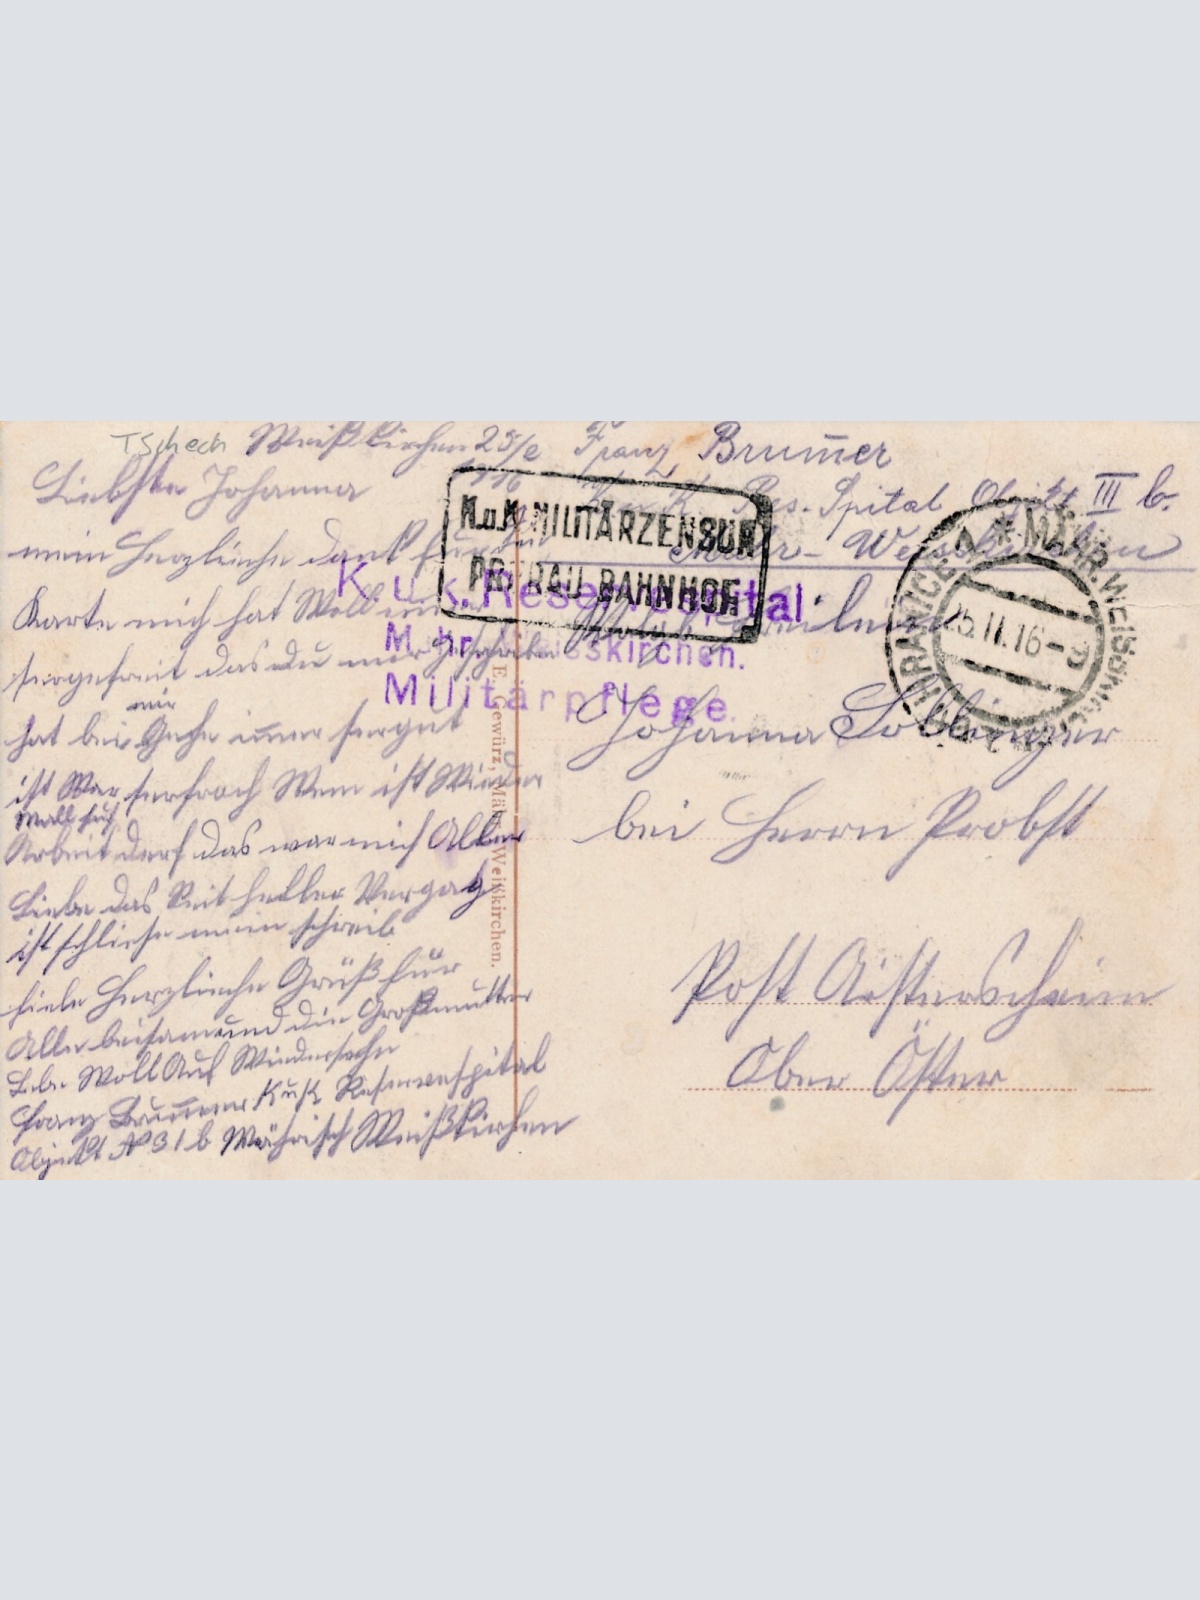 Tschech
Weißkirchen 25/2
116
Liebste Johanna
mein Herzliche dank für die
Karte mich hat Woll immer
sergefreit das Du mir geschriben
hat bei mir Gehe immer sergut
ist War serfroch Wem ist Wieder
Wall
Arbeit derf das war mich Aller
Liebe das Zeit heller Vergag
ist schliese mein schreib
fiele Herzliche Grüß für
Alle beisam und die Großmutter
Lebe Woll Auf Wiedersehn
Franz Brummer KuK Reservespital
Objekt No 3 1 b Mährisch Weißkirchen
Franz Brummer
K. Res. Spital Objekt III b.
Mähr - Weisskirchen
K.u.K. MILITÄRZENSUR
PRERAU BAHNHOF
K.u.k. Reservespital
Mähr. Weisskirchen.
Militärpflege.
HRANICE A * MÄHR. WEISSKIRCHEN
25.II.16-9
Fräulein
Johanna
bei Herrn Probst
Post Aistersheim
Ober Öster
E. Gewürz, Mähr. Weißkirchen.